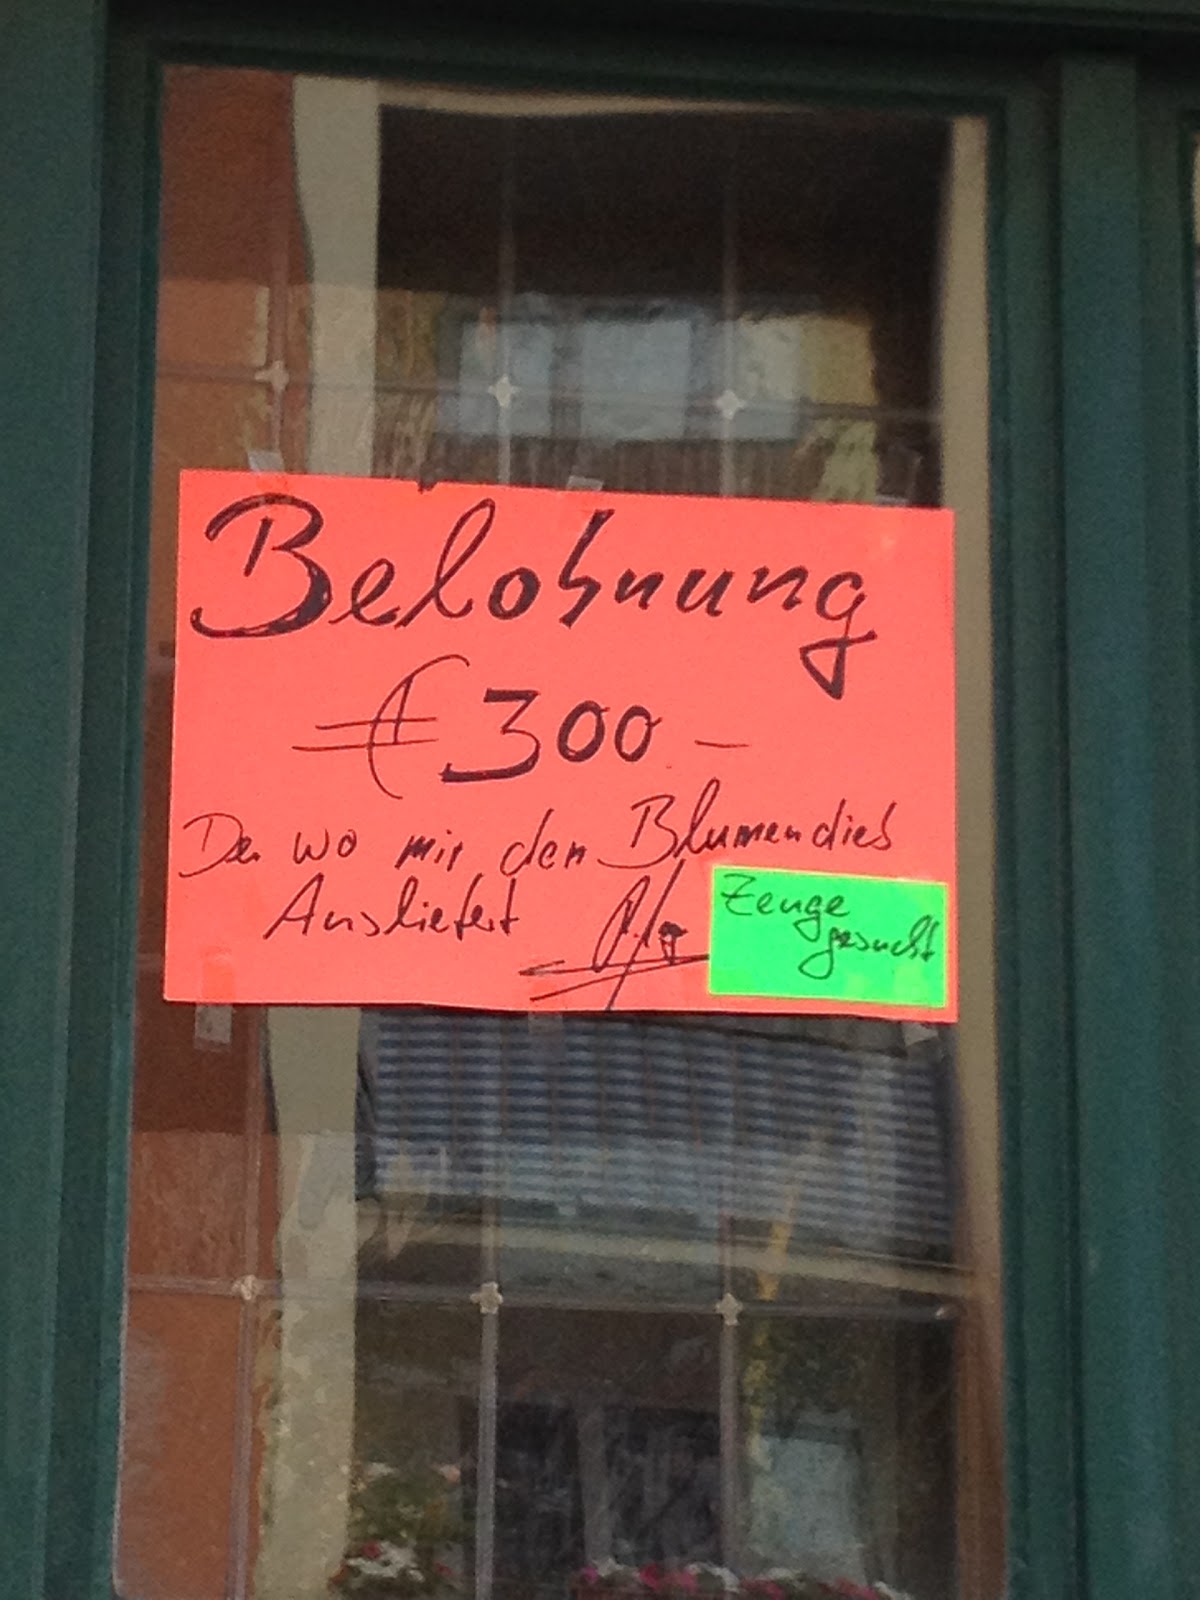 Belohnung
€ 300 -
Der wo mir den Blumendieb
Ausliefert
Zeuge
gesucht